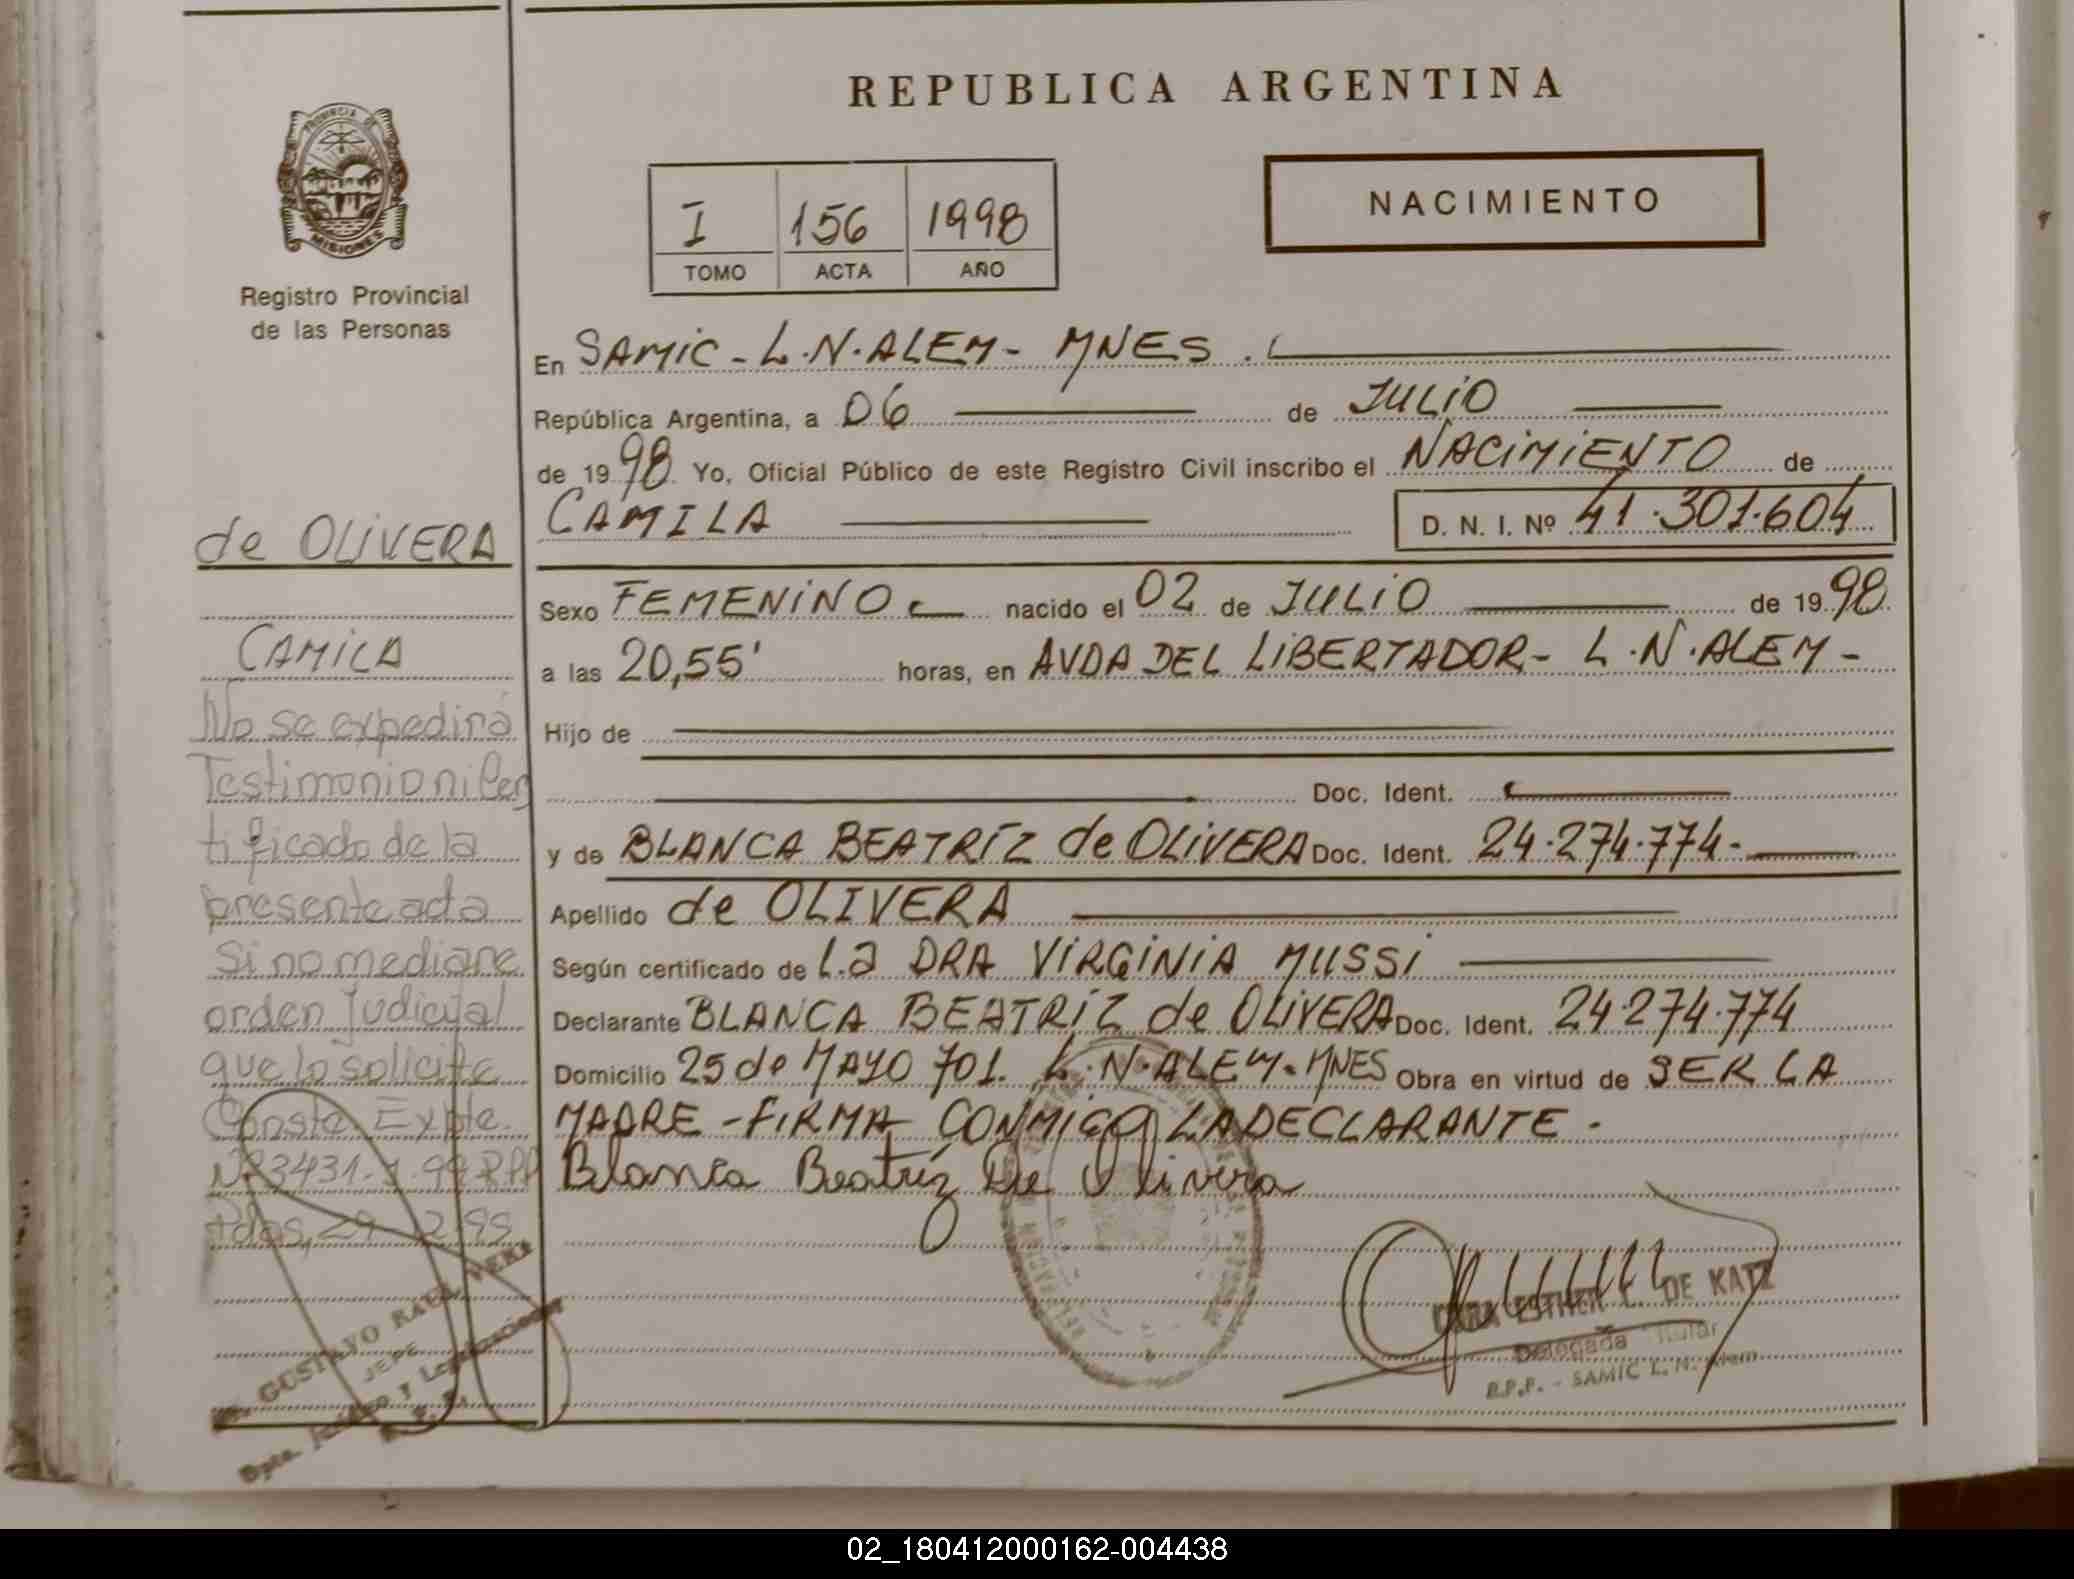 REPUBLICA ARGENTINA
PROVINCIA DE
MISIONES
Registro Provincial
de las Personas
I 156 1998
TOMO ACTA AÑO
NACIMIENTO
En SAMIC - L.N. ALEM - MNES.
República Argentina, a 06 de JULIO
de 1998 Yo, Oficial Público de este Registro Civil inscribo el NACIMIENTO de
CAMILA D. N. I. Nº 41.301.604
Sexo FEMENINO nacido el 02 de JULIO de 1998
a las 20,55' horas, en AVDA DEL LIBERTADOR - L.N. ALEM -
Hijo de
Doc. Ident.
y de BLANCA BEATRÍZ de OLIVERA Doc. Ident. 24.274.774.-
Apellido de OLIVERA
Según certificado de La DRA VIRGINIA MUSSI
Declarante BLANCA BEATRÍZ de OLIVERA Doc. Ident. 24.274.774
Domicilio 25 de MAYO 701. L.N. ALEM - MNES Obra en virtud de SER LA
MADRE - FIRMA CONMIGO LA DECLARANTE.
Blanca Beatríz De Olivera
ESTHER DE KATZ
Delegada Titular
R.P.P. - SAMIC L. N. Alem
de OLIVERA
CAMILA
No se expedirá
Testimonio ni Cer
tificado de la
presente acta
Si no mediare
orden judicial
que lo solicite
Conste Expte.
Nº 3431-
GUSTAVO RAUL
JEFE
02_180412000162-004438